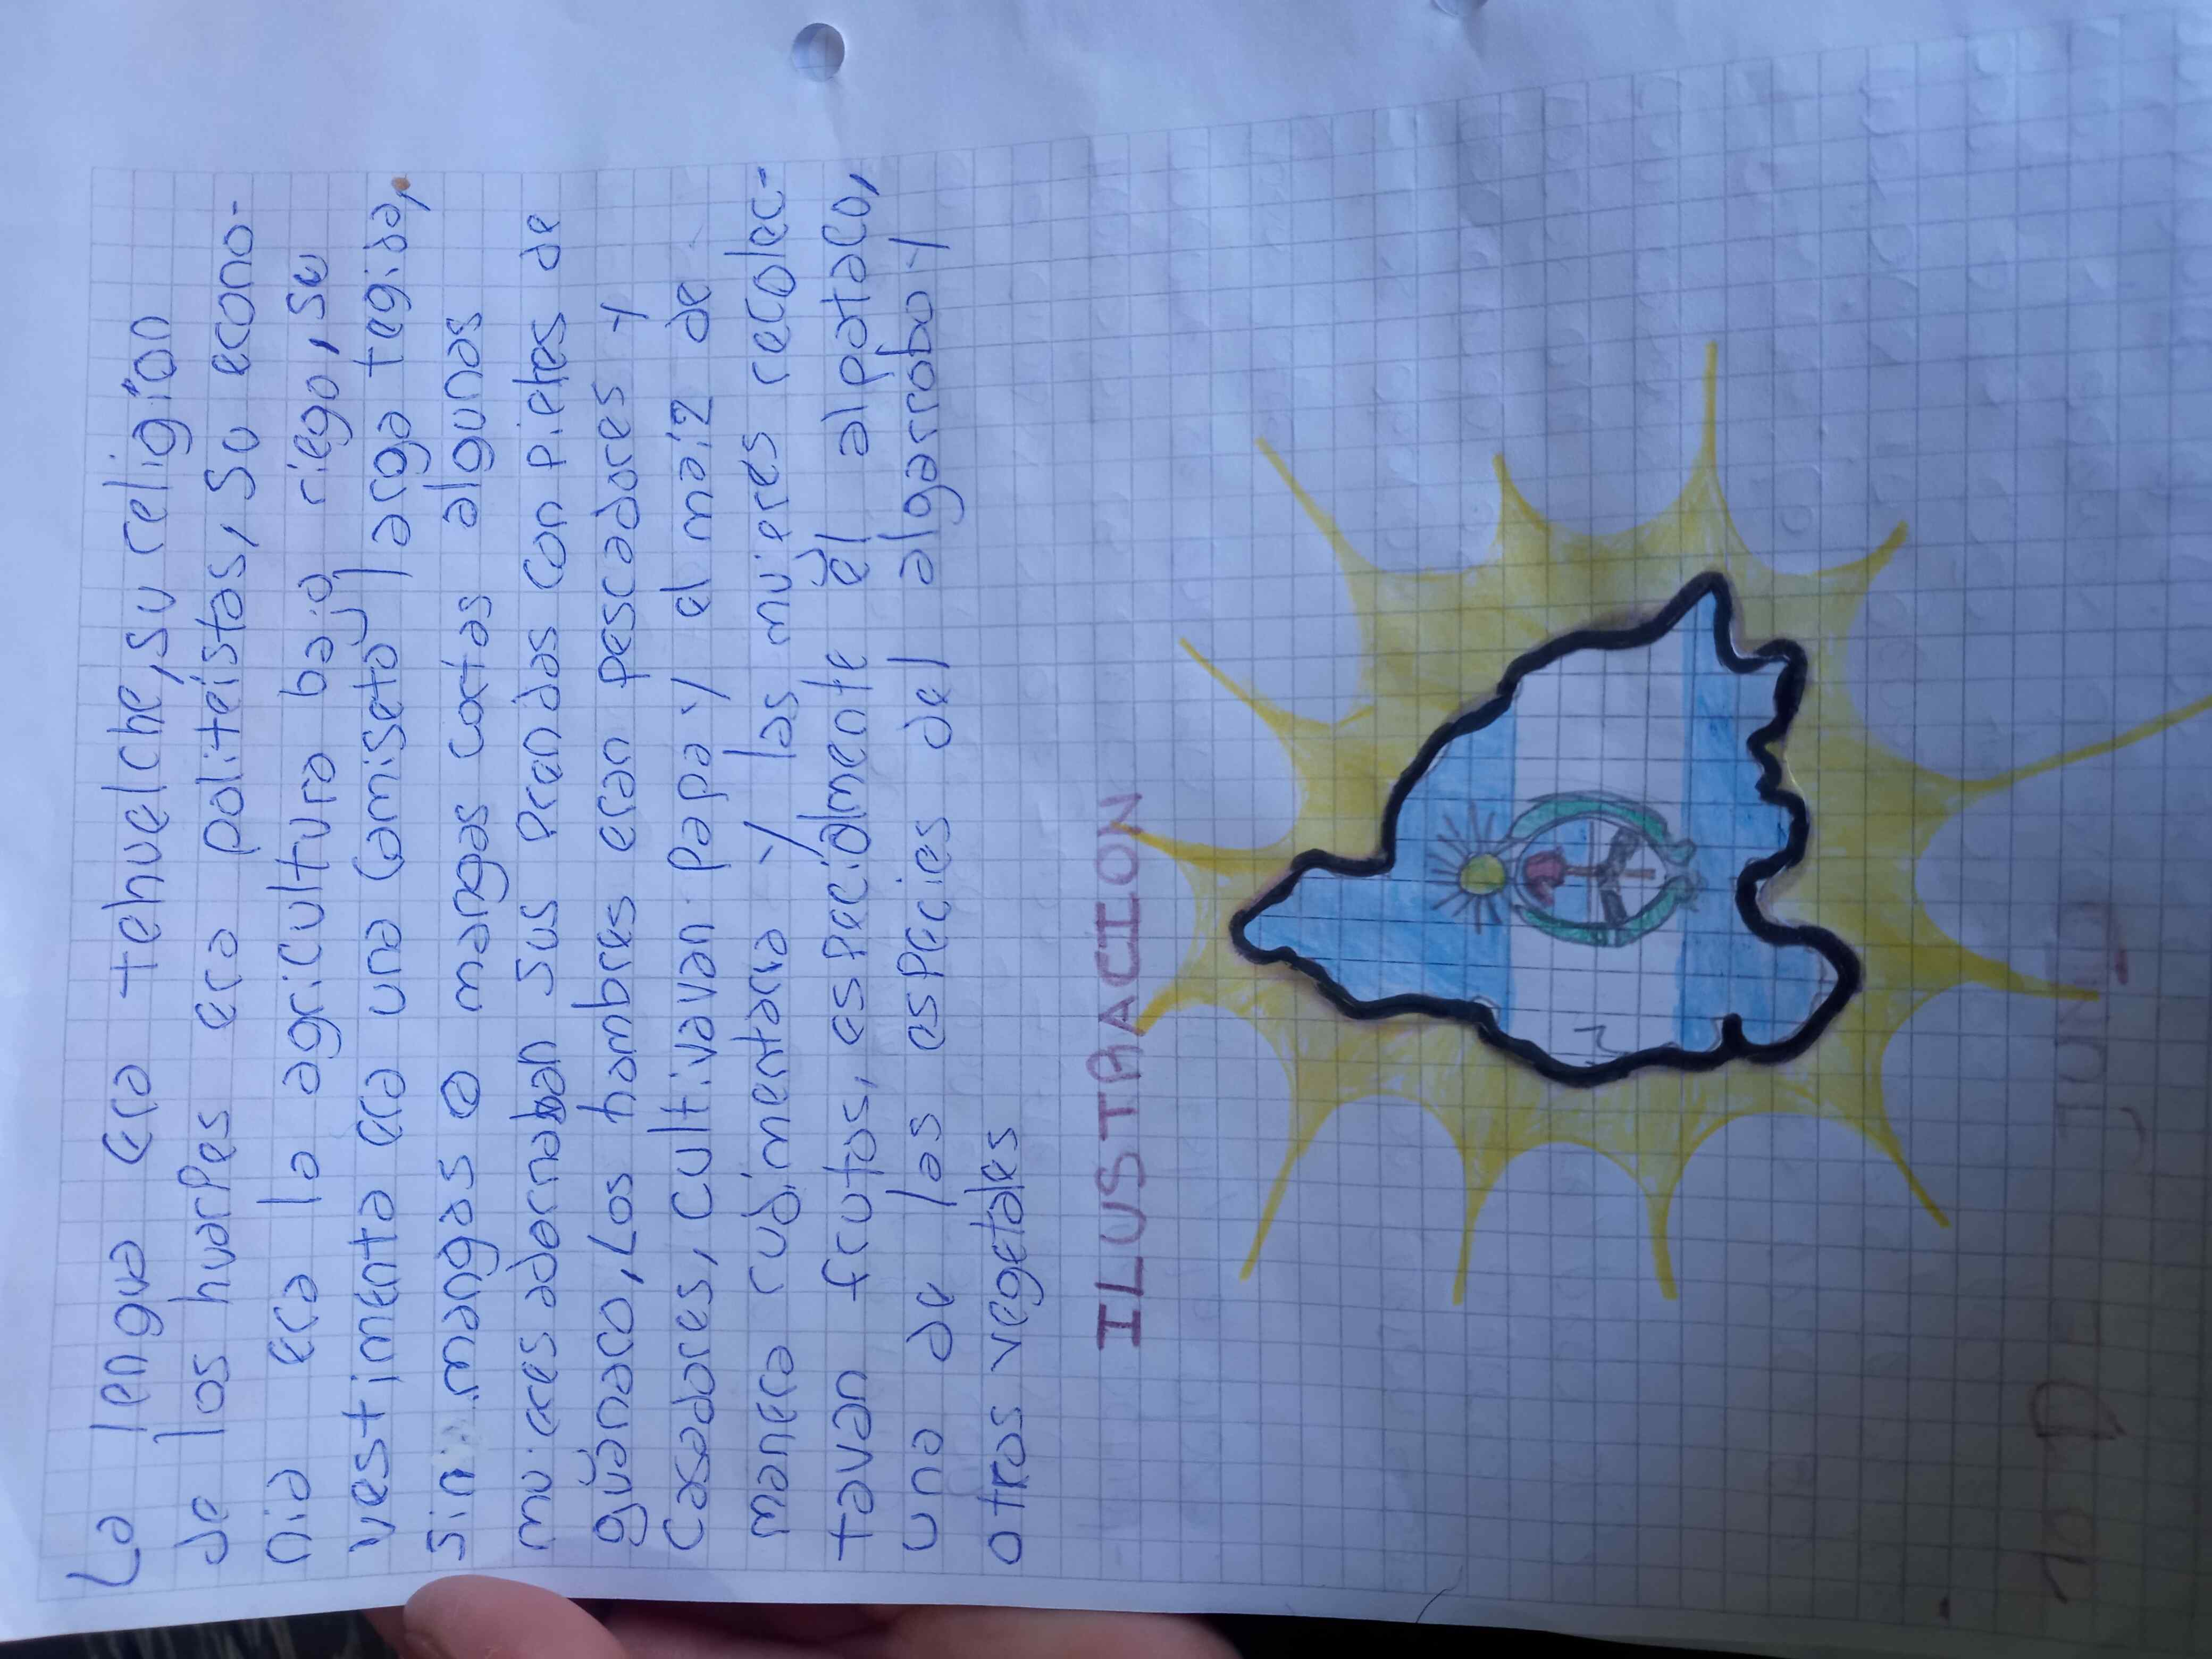 La lengua era tehuelche, su religíon
de los huarpes era politeístas, su econo-
nia era la agricultura bajo riego, su
vestimenta era una camiseta larga tegida,
sin mangas o mangas cortas algunas
mujeres adornaban sus prendas con pieles de
guanaco, Los hombres eran pescadores y
casadores, cultivavan papa y el maiz de
manera rudimentaria y las mujeres recolec-
tavan frutos, especialmente el alpataco,
una de las especies del algarrobo y
otros vegetales
ILUSTRACION